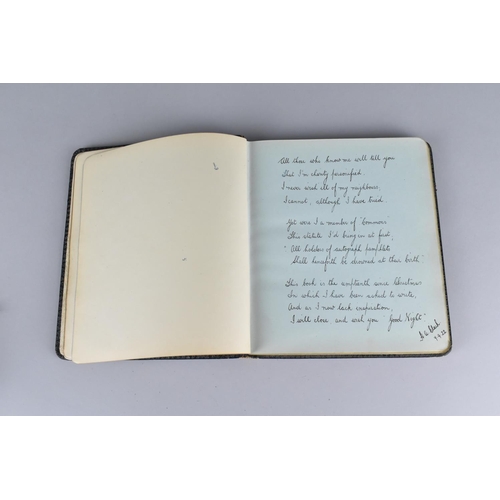 All those who know me will tell you
That I'm charity personified.
I never used all of my neighbours,
I cannot, although I have tried.
Yet were I a member of 'Commons'
This statute I'd bring in at first,
"All holders of autograph pamphlets
Shall henceforth be drowned at their birth."
This book is the umpteenth since Christmas
In which I have been asked to write,
And as I now lack inspiration,
I will close and wish you "Good Night."